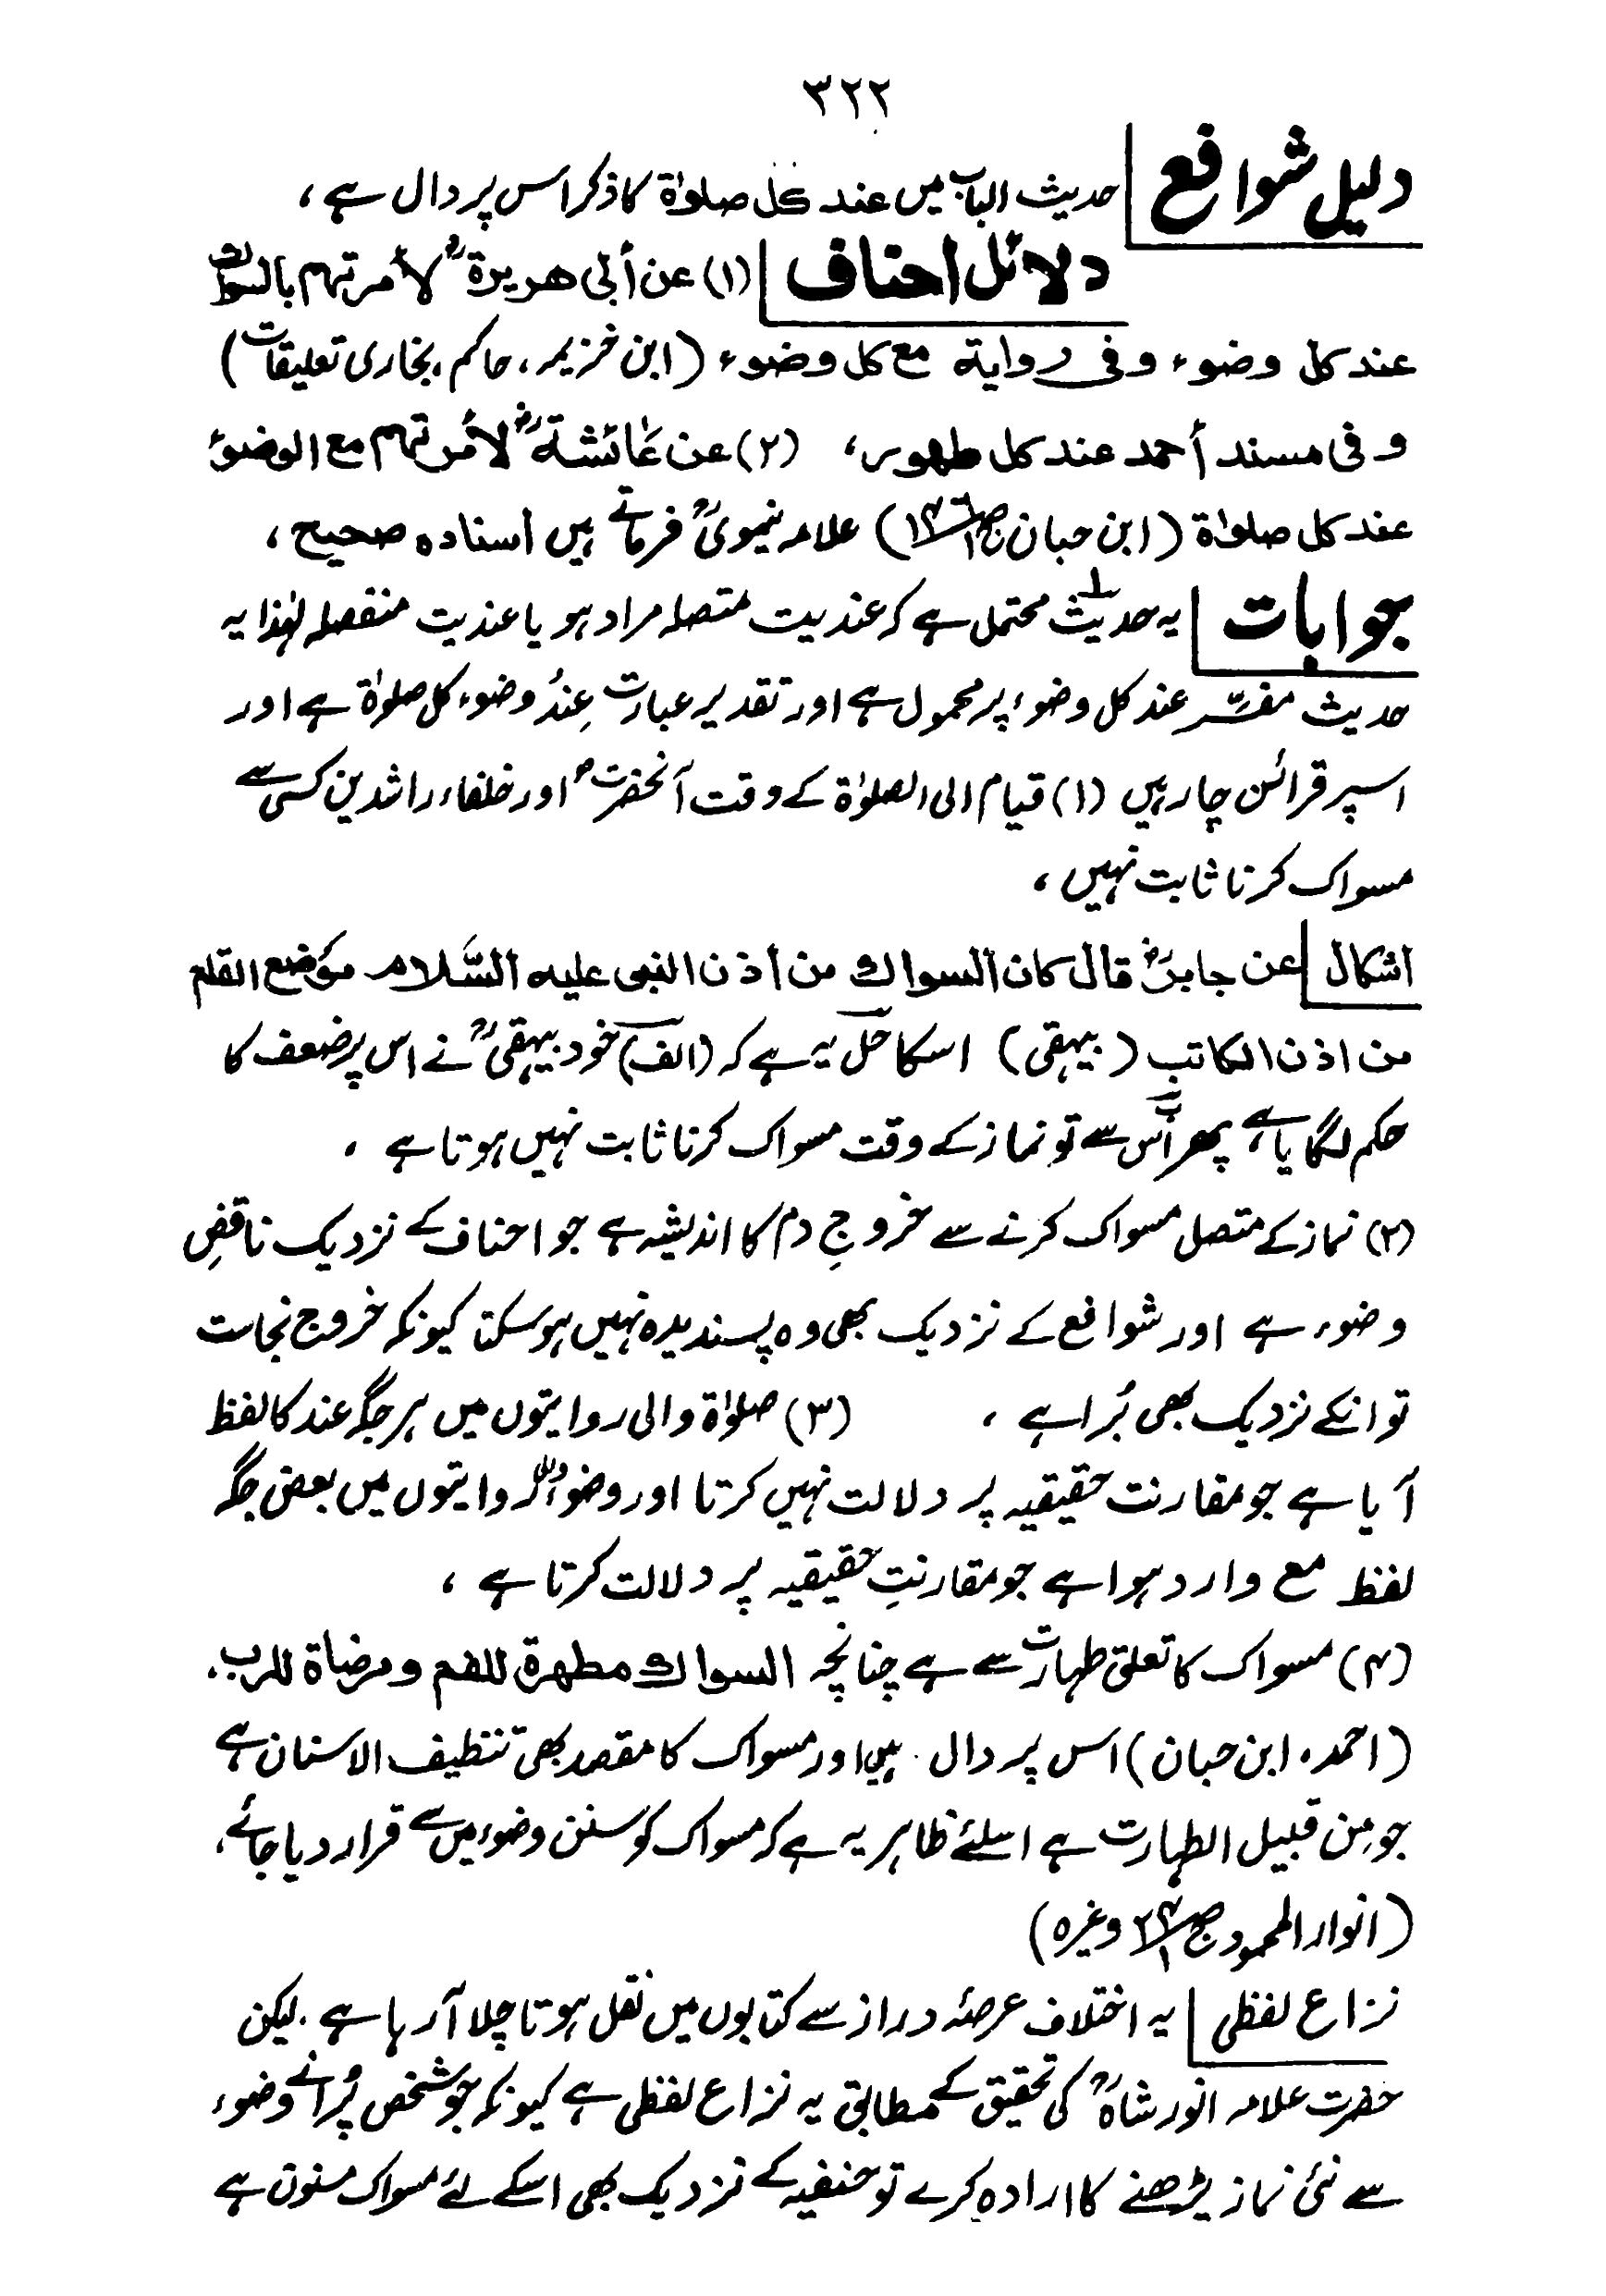 ۳۲۲
دلیل شوافع | حدیث الباب میں عند کل صلوٰۃ کا ذکر اس پر دال ہے ،
دلائل احناف | (۱) عن أبی ھریرۃ ؓ لأمرتہم بالسواك
عند کل وضوء وفی روایة مع کل وضوء (ابن خزیمہ ، حاکم ، بخاری تعلیقات)
وفی مسند أحمد عند کل طھور ، (۲) عن عائشة ؓ لأمرتہم مع الوضوء
عند کل صلوٰۃ (ابن حبان) علامہ نیموی ؒ فرماتے ہیں أسنادہ صحیح ،
جوابات | یہ حدیث محتمل ہے کہ عندیت متصلہ مراد ہو یا عندیت منفصلہ لہٰذا یہ
حدیث مفسَّر عند کل وضوء پر محمول ہے اور تقدیر عبارت عِندَ وضوء کل صلوٰۃ ہے اور
اسپر قرائن چار ہیں (۱) قیام الی الصلوٰۃ کے وقت آنحضرت ؐ اور خلفاء راشدین کسی سے
مسواک کرنا ثابت نہیں ،
اشکال | عن جابر ؓ قال کان السواك من أذن النبی علیہ السَّلام موضع القلم
من اذن الکاتب (بیہقی) اسکا حل یہ ہے کہ (الف) خود بیہقی ؒ نے اس پر ضعف کا
حکم لگایا ہے ، پھر (ب) اس سے تو نماز کے وقت مسواک کرنا ثابت نہیں ہوتا ہے ،
(۲) نماز کے متصل مسواک کرنے سے خروجِ دم کا اندیشہ ہے جو احناف کے نزدیک ناقضِ
وضوء ہے اور شوافع کے نزدیک بھی وہ پسندیدہ نہیں ہو سکتا کیونکہ خروج نجاست
تو انکے نزدیک بھی بُرا ہے ، (۳) صلوٰۃ والی روایتوں میں ہر جگہ عند کا لفظ
آیا ہے جو مقارنت حقیقیہ پر دلالت نہیں کرتا اور وضوء والی روایتوں میں بعض جگہ
لفظ مع وارد ہوا ہے جو مقارنتِ حقیقیہ پر دلالت کرتا ہے ،
(۴) مسواک کا تعلق طہارت سے ہے چنانچہ السواك مطھرۃ للفم ومرضاۃ للرب ،
(احمد ، ابن حبان) اس پر دال ہیں اور مسواک کا مقصد بھی تنظیف الاسنان ہے
جو مِن قبیل الطہارت ہے اسلئے ظاہر یہ ہے کہ مسواک کو سنن وضوء میں سے قرار دیا جائے ،
(انوار المحمود وغیرہ)
نزاع لفظی | یہ اختلاف عرصۂ دراز سے کتابوں میں نقل ہوتا چلا آ رہا ہے . لیکن
حضرت علامہ انور شاہ ؒ کی تحقیق کے مطابق یہ نزاع لفظی ہے کیونکہ جو شخص پُرانے وضوء
سے نئی نماز پڑھنے کا ارادہ کرے تو حنفیہ کے نزدیک بھی اسکے لئے مسواک مسنون ہے